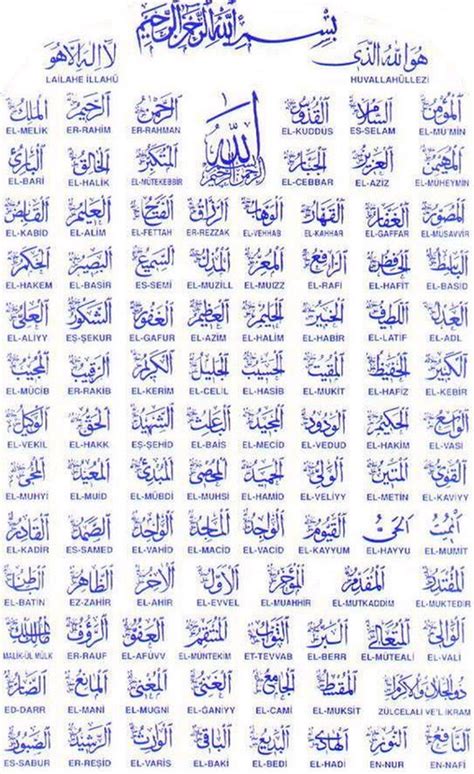 بسم الله الرحمن الرحيم
هو الله الذى
لا اله الا هو
LAILAHE İLLAHÜ HUVALLAHÜLLEZİ
المؤمن السلام القدوس الله الرحمن الرحيم الملك
EL-MELİK ER-RAHİM ER-RAHMAN EL-KUDDÜS ES-SELAM EL-MÜ'MİN
المهيمن العزيز الجبار المتكبر الخالق البارئ
EL-BARİ EL-HALİK EL-MÜTEKEBBİR EL-CEBBAR EL-AZİZ EL-MÜHEYMİN
المصور الغفار القهار الوهاب الرزاق الفتاح العليم القابض
EL-KABID EL-ALİM EL-FETTAH ER-REZZAK EL-VEHHAB EL-KAHHAR EL-GAFFAR EL-MÜSAVVİR
الباسط الخافض الرافع المعز المذل السميع البصير الحكم
EL-HAKEM EL-BASİR ES-SEMİ EL-MUZİLL EL-MUIZZ EL-RAFİ EL-HAFİT EL-BASİD
العدل اللطيف الخبير الحليم العظيم الغفور الشكور العلي
EL-ALİYY EŞ-ŞEKUR EL-GAFUR EL-AZİM EL-HALİM EL-HABİR EL-LATİF EL-ADL
الكبير الحفيظ المقيت الحسيب الجليل الكريم الرقيب المجيب
EL-MÜCİB ER-RAKİB EL-KERİM EL-CELİL EL-HASİB EL-MUKİT EL-HAFİZ EL-KEBİR
الواسع الحكيم الودود المجيد الباعث الشهيد الحق الوكيل
EL-VEKİL EL-HAKK EŞ-ŞEHİD EL-BAİS EL-MECİD EL-VEDUD EL-HAKİM EL-VASİ
القوي المتين الولي الحميد المحصي المبدئ المعيد المحيي
EL-MUHYİ EL-MUİD EL-MÜBDİ EL-MUHSİ EL-HAMİD EL-VELİYY EL-METİN EL-KAVİYY
المميت الحي القيوم الواجد الماجد الواحد الصمد القادر
EL-KADİR ES-SAMED EL-VAHİD EL-MACİD EL-VACİD EL-KAYYUM EL-HAYYU EL-MUMİT
المقتدر المقدم المؤخر الاول الاخر الظاهر الباطن
EL-BATIN EZ-ZAHİR EL-AHİR EL-EVVEL EL-MUAHHİR EL-MUTKADDİM EL-MUKTEDİR
الوالي المتعالي البر التواب المنتقم العفو الرؤف مالك الملك
MALİK-ÜL MÜLK ER-RAUF EL-AFÜVV EL-MÜNTEKİM ET-TEVVAB EL-BERR EL-MÜTEALİ EL-VALİ
ذو الجلال والاكرام المقسط الجامع الغني المغني المانع الضار
ED-DARR EL-MANİ EL-MUGNİ EL-GANİYY EL-CAMİ EL-MUKSİT ZÜLCELALİ VE'L İKRAM
النافع النور الهادي البديع الباقي الوارث الرشيد الصبور
ES-SABUR ER-REŞİD EL-VARİS EL-BAKİ EL-BEDİ EL-HADİ EN-NUR EN-NAFİ